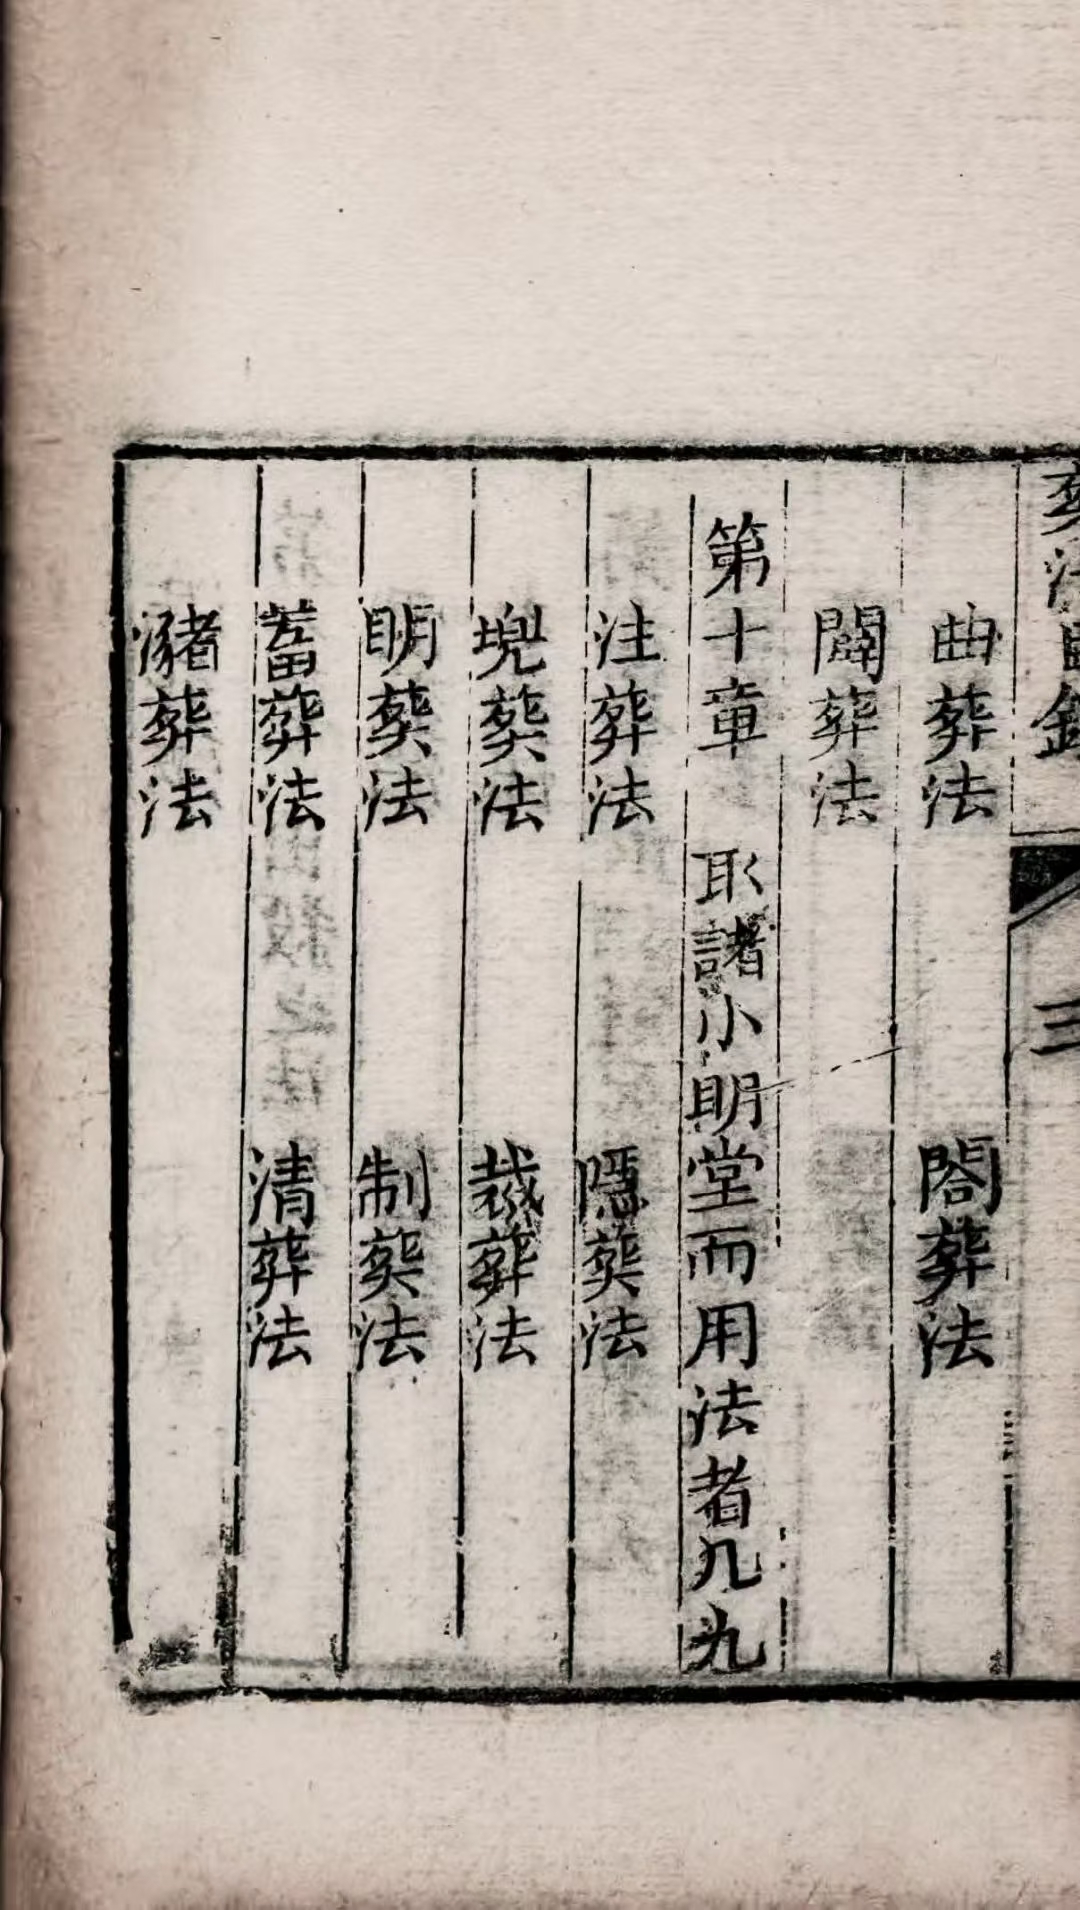 葬法目錄
三
曲葬法　閤葬法
闢葬法
第十章　取諸小明堂而用法者凡九
注葬法　隱葬法
堍葬法　裁葬法
明葬法　制葬法
蓄葬法　清葬法
瀦葬法